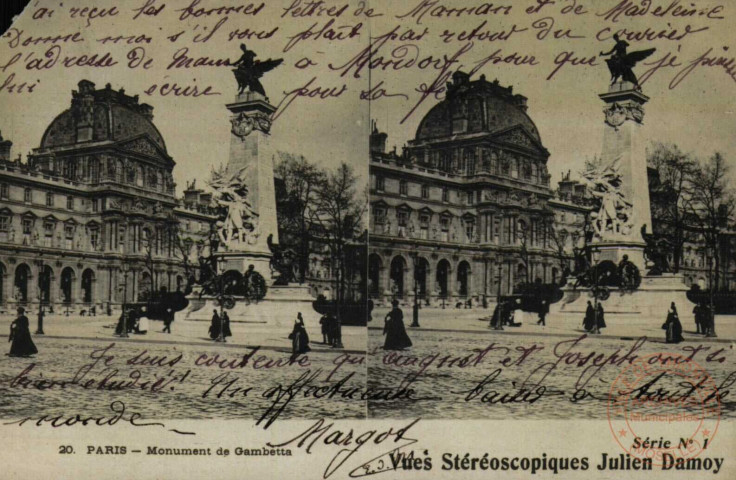 J'ai reçu les bonnes lettres de Maman et de Madeleine
Donne moi s'il vous plait par retour du courier
l'adresse de Mam à Mondorf pour que je puisse
lui écrire pour sa fê
Je suis contente que auguet et Joseph ont si
bien étudié! Un affectueuse baiser à tout le
monde —
Margot
20. PARIS — Monument de Gambetta
Série N° 1
Vues Stéréoscopiques Julien Damoy